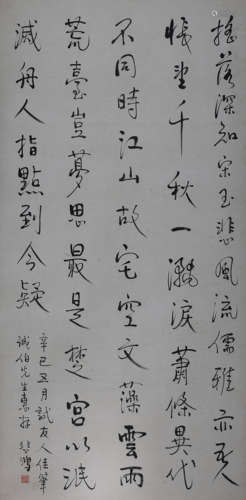 搖落深知宋玉悲風流儒雅亦吾
悵望千秋一灑淚蕭條異代
不同時江山故宅空文藻雲雨
荒臺豈夢思最是楚宮以泯
滅舟人指點到今疑
辛巳五月試友人佳筆
誠伯先生惠存 悲鴻